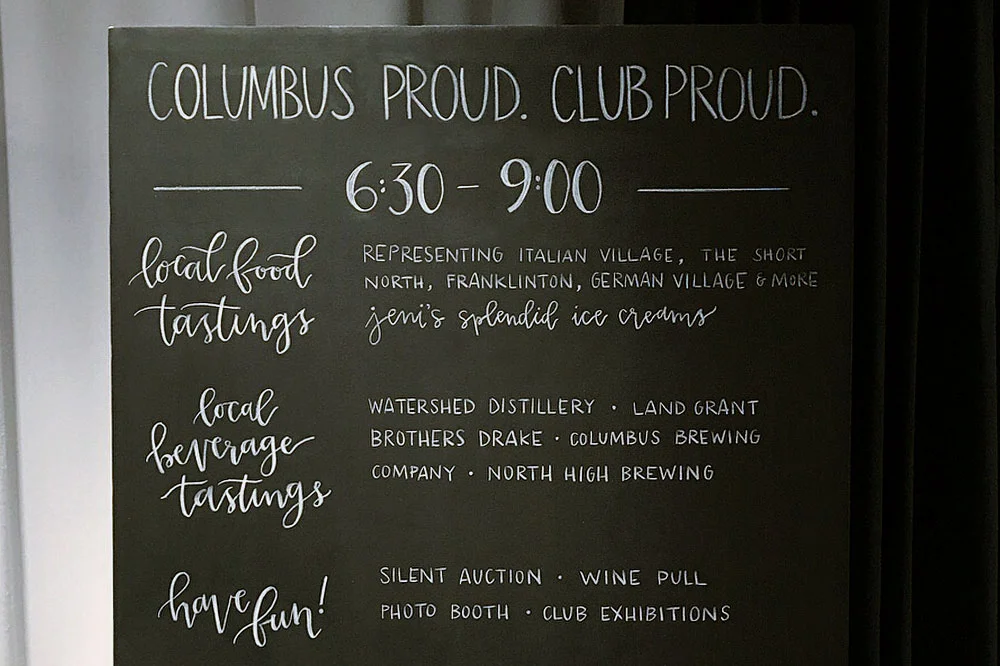 COLUMBUS PROUD. CLUB PROUD.
6:30 - 9:00
local food
tastings
REPRESENTING ITALIAN VILLAGE, THE SHORT
NORTH, FRANKLINTON, GERMAN VILLAGE & MORE
jeni's splendid ice creams
local
beverage
tastings
WATERSHED DISTILLERY · LAND GRANT
BROTHERS DRAKE · COLUMBUS BREWING
COMPANY · NORTH HIGH BREWING
have
fun!
SILENT AUCTION · WINE PULL
PHOTO BOOTH · CLUB EXHIBITIONS